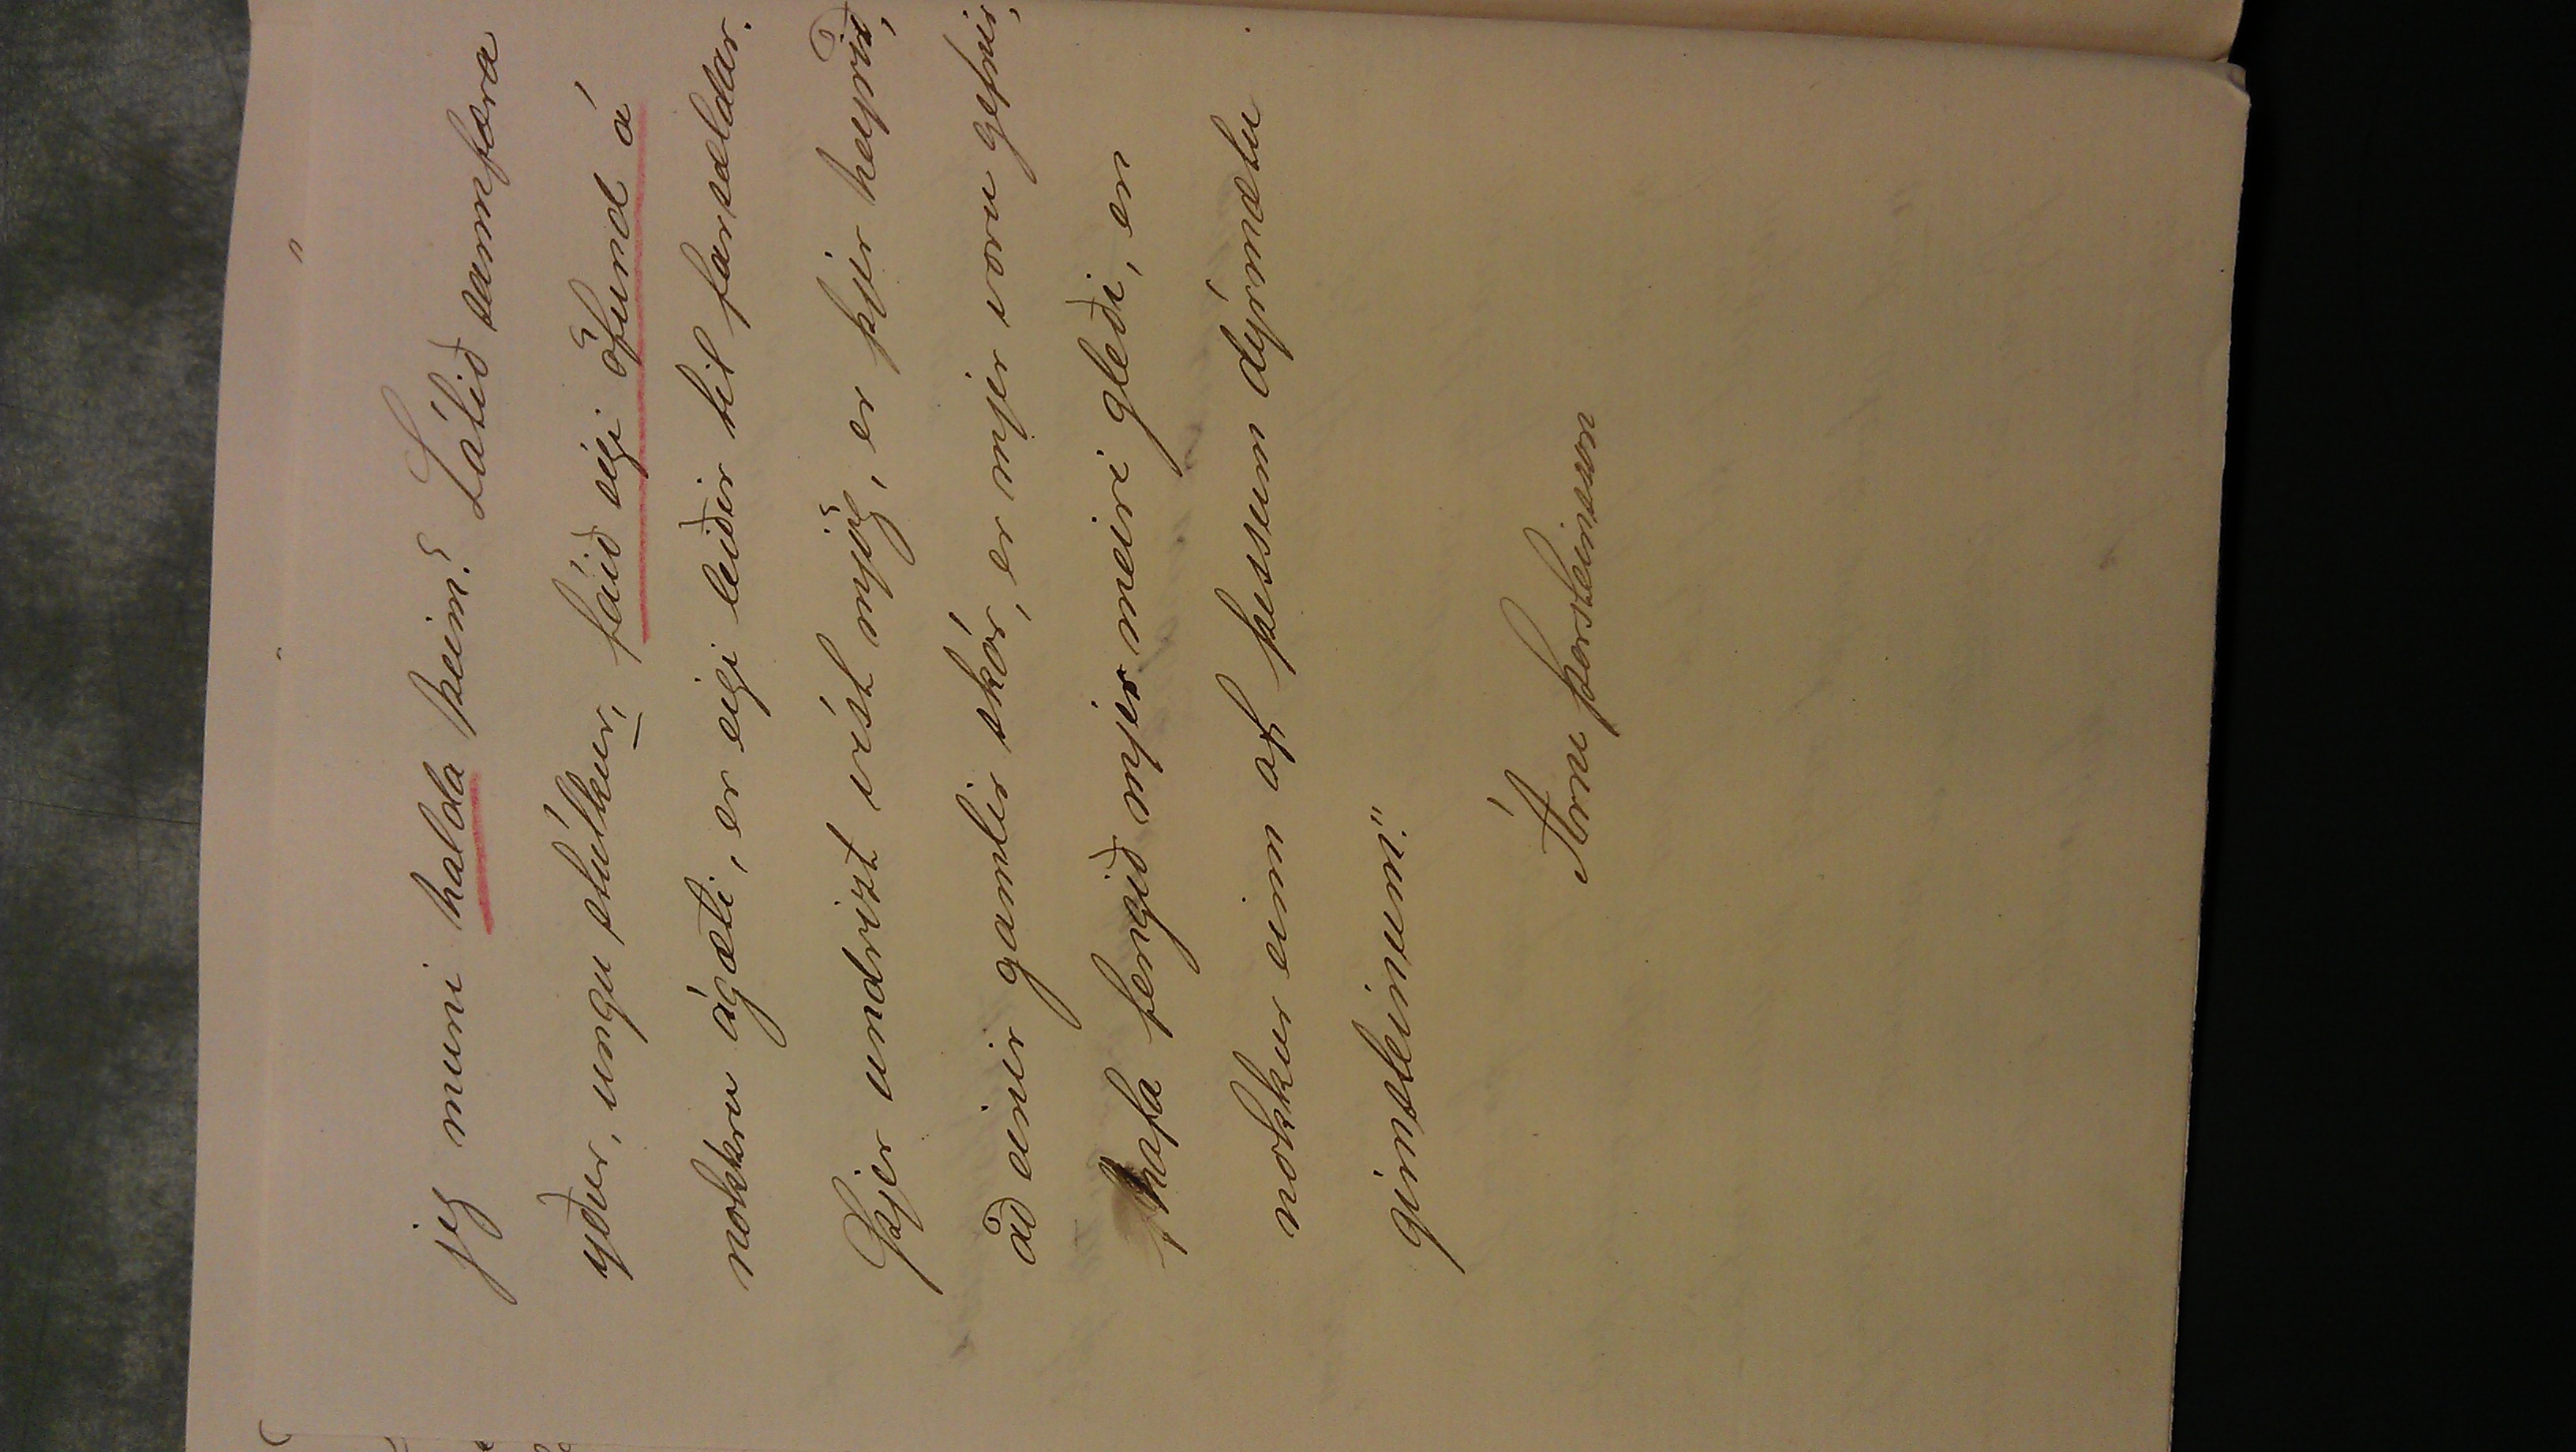 jeg muni halda þeim? Látið sannfæra
yður, ungu stúlkur, fáið eigi öfund á
nokkru ágæti, er eigi leiðir til farsældar.
Þjer undrizt víst mjög, er þjer heyrið,
að einir gamlir skór, er mjer voru gefnir,
hafa fengið mjer meiri gleði, en
nokkur einn af þessum dýrmætu
gimsteinum."
Árni Þorsteinsson